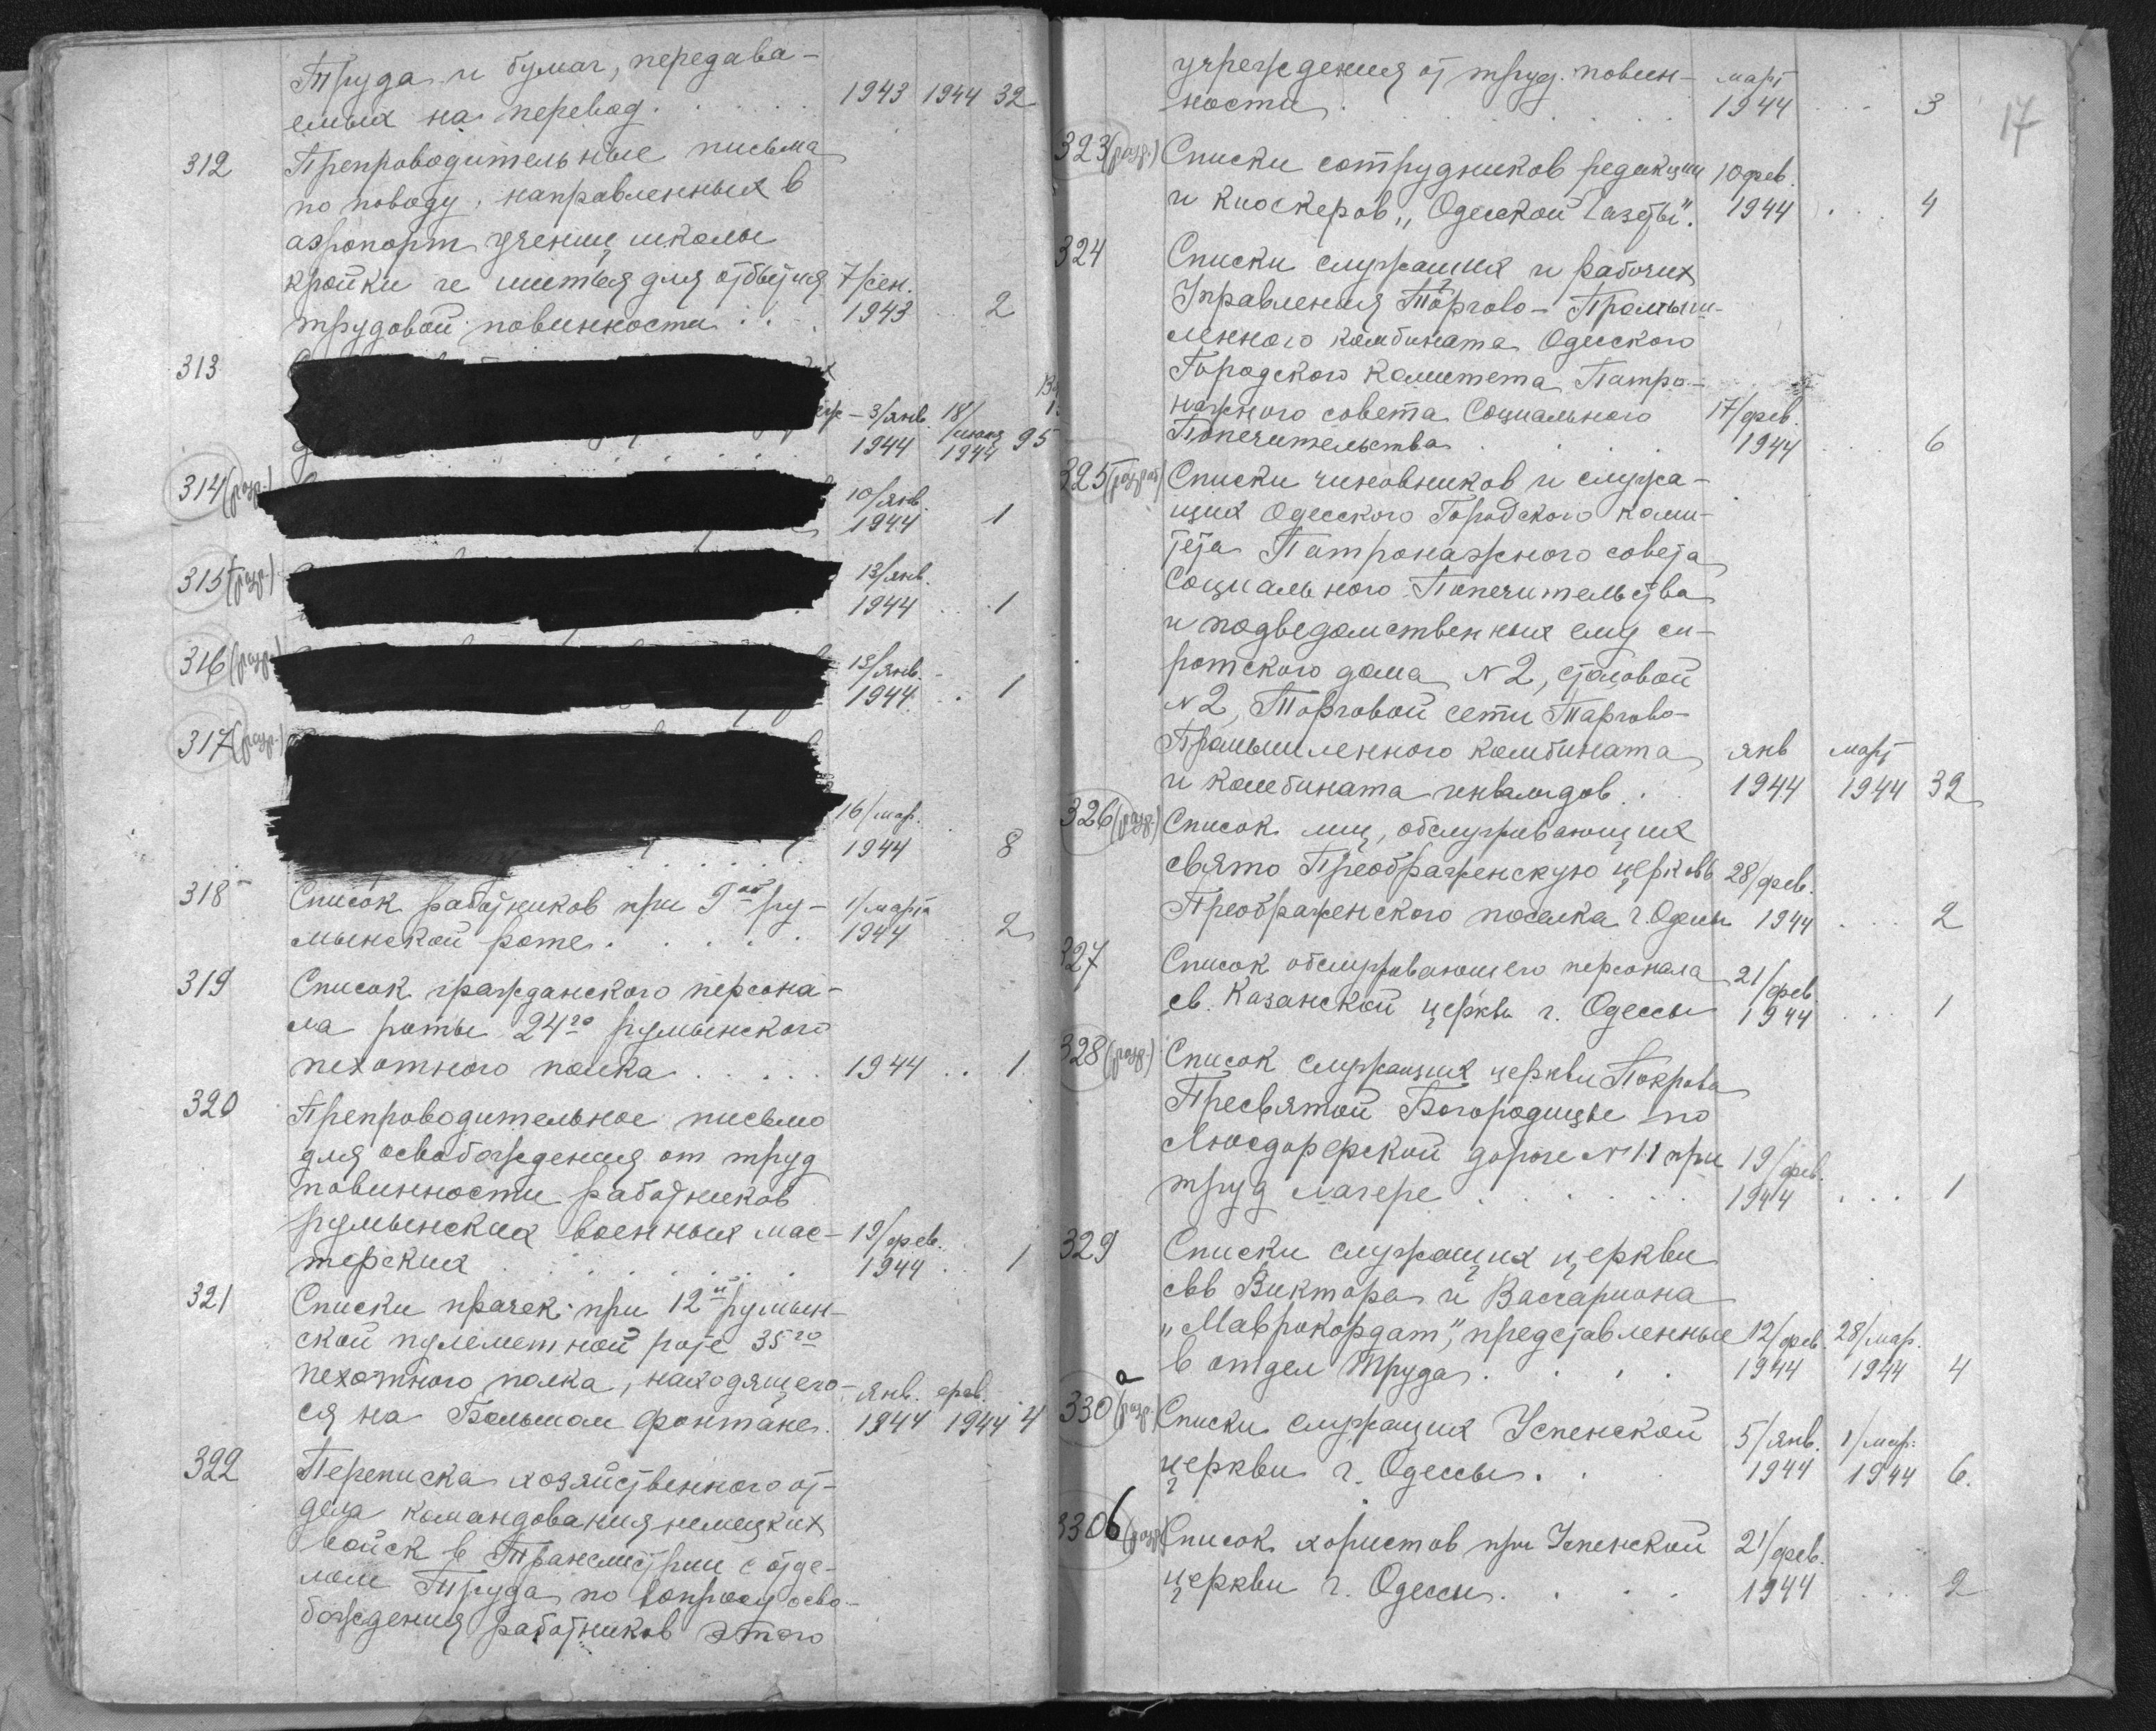 Труда и бумаг, передава-
емых на перевод. 1943 1944 32
312 Препроводительные письма
по поводу, направленных в
аэропорт учениц школы
кройки и шитья для отбытия 7/сен.
трудовой повинности 1943 2
313
3/янв. 18/июня
1944 1944 95
314 (разр.) 10/янв.
1944 1
315 (разр.) 13/янв.
1944 1
316 (разр.) 13/янв.
1944 1
317 (разр.)
16/мар.
1944 8
318 Список работников при 7ой ру- 1/марта
мынской роте. 1944 2
319 Список гражданского персона-
ла роты 24го румынского
пехотного полка 1944 1
320 Препроводительное письмо
для освобождения от труд
повинности работников
румынских военных мас- 19/фев.
терских 1944 1
321 Списки прачек при 12й румын-
ской пулеметной роте 35го
пехотного полка, находящего- янв. фев.
ся на Большом Фонтане. 1944 1944 4
322 Переписка хозяйственного от-
дела командования немецких
войск в Транснистрии с отде-
лом Труда по вопросу осво-
бождения работников этого
17
учреждения от труд. повин- март
ности 1944 3
323 (разр.) Списки сотрудников редакции 10 фев.
и киоскеров „Одесской Газеты". 1944 4
324 Списки служащих и рабочих
Управления Торгово-Промыш-
ленного комбината Одесского
Городского Комитета Патро-
нажного совета Социального 17/фев.
Попечительства 1944 6
325 Списки чиновников и служа-
щих Одесского Городского коми-
тета Патронажного совета
Социального Попечительства
и подведомственных ему си-
ротского дома N 2, столовой
N 2, Торговой сети Торгово-
Промышленного комбината янв март
и комбината инвалидов. 1944 1944 32
326 (разр.) Список лиц, обслуживающих
свято Преображенскую церковь 28/фев.
Преображенского поселка г. Одессы 1944 2
327 Список обслуживающего персонала 21/фев
св. Казанской церкви г. Одессы 1944 1
328 (разр.) Список служащих церкви Покрова
Пресвятой Богородицы по
Люсдорфской дороге N 11 при 19/фев.
труд лагере 1944 1
329 Списки служащих церкви
свв Виктора и Вассариона
„Маврокордат", представленные 12/фев. 28/мар.
в отдел Труда. 1944 1944 4
330а (разр.) Списки служащих Успенской 5/янв. 1/мар.
церкви г. Одессы. 1944 1944 6.
330б (разр.) Список хористов при Успенской 21/фев.
церкви г. Одессы. 1944 2